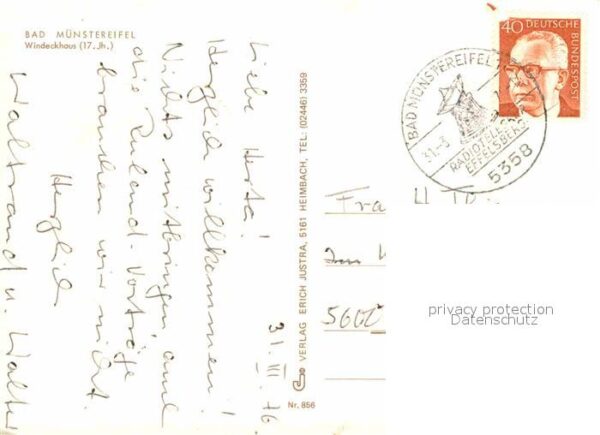 BAD MÜNSTEREIFEL
Windeckhaus (17. Jh.)
31. III. 76
Liebe Herta!
Herzlich willkommen!
Nichts mitbringen, auch
die Ruland-Vorträge
brauchen wir nicht.
Herzlich
Waltraud u. Walter
VERLAG ERICH JUSTRA, 5161 HEIMBACH, TEL: (02446) 3359
Nr. 856
40 DEUTSCHE BUNDESPOST
BAD MÜNSTEREIFEL 1
31.-3.
RADIOTELESKOP
EFFELSBERG
5358
privacy protection
Datenschutz